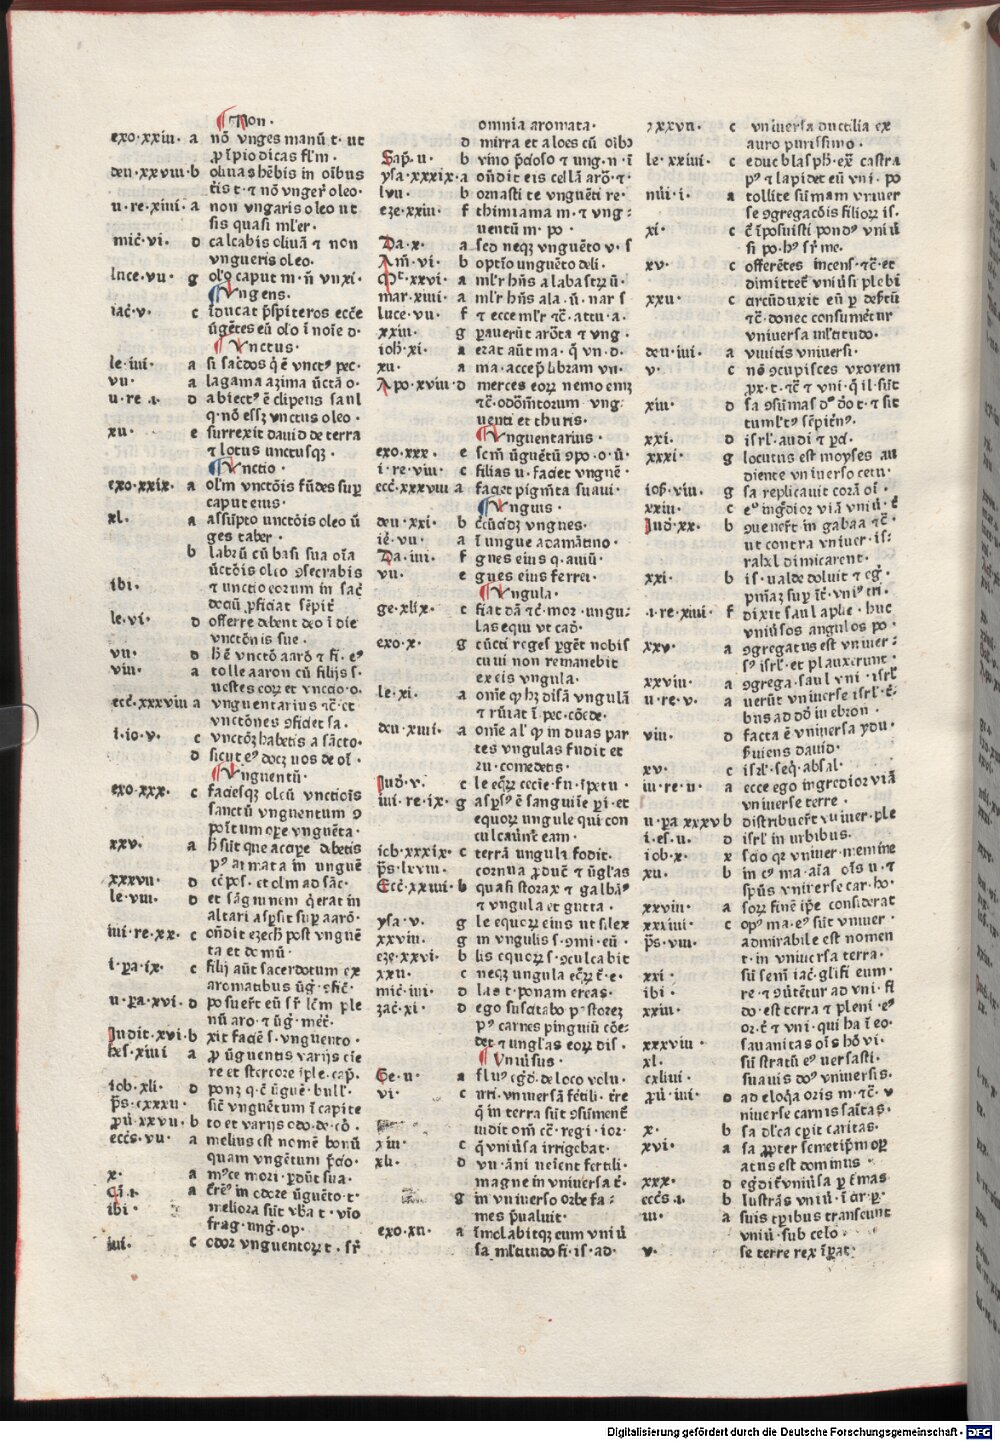 ¶ Non·
exo·xxiii· a nō vnges manū t· ut
ꝓ īpio dicas fl'm·
deu·xxviii·b oliuas hēbis in oībus
t̄is t·⁊ nō vnger' oleo·
ii·re·xiiii·a non vngaris oleo ut
sis quasi ml'er·
mic̄·vi· d calcabis oliuā ⁊ non
vngueris oleo·
luce·vii· g ol'o caput m·n̄ vnxi·
¶ Vngens·
iac̄·v· c īducat p̄spiteros ecc̄e
ūgētes eū ol'o ī noīe d·
¶ Vnctus·
le·iiii· a si sac̄dos q̄ ē vnctꝰ pec·
vii· a lagama azima ūctā o·
ii·re·i· d abiectꝰ ē clipeus saul
q·nō esset vnctus oleo·
xii· e surrexit dauid de terra
⁊ lotus unctusqꝫ·
¶ Vnctio·
exo·xxix· a ol'm vnctōis fūdes suꝑ
caput eius·
xl· a assūpto unctōis oleo ū
ges taber·
b labrū cū basi sua oīa
ūctōis oleo ꝯsecrabis
ibi· ⁊ unctio eorum in sac̄
le·vi· d offerre debent deo ī die
vnctōnis sue·
vii· d h' ē vnctō aarō ⁊ fi·eꝰ
viii· a tolle aaron cū filijs s·
uestes eoꝝ et vnctio·o·
ecc̄·xxxviii a vnguentarius ⁊c̄·et
vnctōnes ꝯficiet sa·
i·io·v· c vnctōꝫ habetis a sācto·
d sicut eꝰ docꝫ uos de oī·
¶ Vnguentū·
exo·xxx· c faciesqꝫ oleū vnctiōis
sanctū vnguentum ꝯ
poītum oꝑe vnguēta·
xxv· a h' sūt que acciꝑe debetis
pꝰ armata in unguē
xxxvii· d
le·viii· d et sāguinem q̄ erat in
altari asꝑsit suꝑ aarō·
iiii·re·xx· c ondit ezech' post vnguē
ta et domū·
i·ꝑa·ix· c filij aūt sacerdotum ex
aromatibus ūg'·ꝯfic̄·
ii·ꝑa·xvi·d posuert eū sr' lc̄m ple
nū aro·⁊ ūg'·mer̄·
Judit·xvi·b xit faciē s·vnguento·
hes·xiiii a ꝓ ūguentis varijs cie
re et stercore īple·cap̄·
iob·xli· d ponꝫ q·c̄ ūguē·bull'·
p̄s·cxxxii· sic̄ vnguētum ī capite
ꝓu·xxvii·b to et varijs odo·de·cō·
eccēs·vii· a melius est nomē bonū
quam vngētum p̄cio·
x· a mꝰce mori·ꝑdūt sua·
Cā·i· a t̄rēꝰ in odore ūguēto·t·
ibi· meliora sūt vb'a t·vīo
frag·ung'·op·
iii· c odor vnguentoꝝ t·sr'
omnia aromata·
d mirra et aloes cū oībꝫ
Sap̄·ii· b vino p̄cioso ⁊ ung·n·ī
ysa·xxxix·a ondit eis cellā arō·⁊
lvii· b ornasti te vnguēti re·
eze·xxiii· f thimiama m·⁊ vng·
uentū m·po·
Da·x· a sed neqꝫ vnguēto v·s
Am̄·vi· b optīo unguēto deli·
Mt̄·xxvi· a ml'r hn̄s alabastꝝ ū·
mar·xiiii· a ml'r hn̄s ala·ū·nar s
luce·vii· f ⁊ ecce ml'r ⁊c̄·attu·a·
xxiii· g ꝑauerūt arōta ⁊ vng·
ioh̄·xi· a erat aūt ma·q̄ vn·d·
xii· a ma·accep̄ libram vn·
Apo·xviii·d merces eoꝝ nemo emꝫ
⁊c̄·odōm̄torum vng·
uenti et thuris·
¶ Vnguentarius·
exo·xxx· e scm̄ ūguētū ꝯpo·o·ū·
i·re·viii· c filias u·faciet vngnē·
ecc̄·xxxviii a faciet pigm̄ta suaui·
¶ Vnguis·
deu·xxi· b c̄cūcidꝫ vngues·
ie·vii· a ī ungue adamātino·
Da·iiii· f gues eius q·auiū·
vii· e gues eius ferrei·
¶ Vngula·
ge·xlix· c fiat dā ⁊c̄·mor·ungu·
las equi vt cad̄·
exo·x· g cūcti reges ꝑgēt nobis
cui non remanebit
ex eis vngula·
le·xi· a om̄e qꝫ hꝫ disā vngulā
⁊ rūiat ī pec·cōcde·
deu·xiiii· a om̄e al' qꝫ in duas par
tes vngulas fīndit et
ru·comedetis·
Jud̄·v· c le eqꝝ cecīe·fu·īpetu·
iiii·re·ix· g asꝑsꝰ ē sanguīe ꝑi·et
equoꝝ ungule qui con
culcaūnt eam·
iob·xxxix· c terrā ungula fodit·
p̄s·lxviii· cornua ꝓduc̄ ⁊ ūglas
Ecc̄·xxiiii·b quasi storax ⁊ galbāꝰ
⁊ vngula et gutta·
ysa·v· g le equoꝝ eius ut silex
xxviii· g in vngulis s·ꝯmi·eū·
eze·xxvi· b lis equoꝝ s·ꝯculcabit
xxii· c neqꝫ ungula eqꝝ t̄·e·
mic̄·iiii· d las t·ponam ereas·
zac̄·xi· d ego suscitabo pastorez
pꝰ carnes pinguiū cōe·
det ⁊ ungl'as eoꝝ dis·
¶ Vniūsus·
Ge·ii· a fl'uꝰ eg'd'·de loco volu·
vi· c irri·vniuersā
q̄ in terra sūt ꝯsūment'
uidit om̄ c̄·regi·ior·
xiii· c q̄ vniūsa irrigebat·
xli· d vn·āni uenient fertili·
magne in vniuersa t̄·
g in vniuerso orbe fa·
mes p̄ualuit·
exo·xii· a īmolabitqꝫ eum vniū
sa ml'titudo fi·is·ad·
xxxvii· c vniuersa ductilia ex
auro purissimo·
le·xxiiii· c educ blasph̄·ex̄ castra
pꝰ ⁊ lapidet eū vni·po
nūi·i· a tollite sūmam vniuer
se ꝯgregacōis filioꝝ is·
xi· c c̄ īposuisti pondꝰ vniū
si po·hꝰ sr' me·
xv· c offerētes incens·⁊c̄·et
dimittet' vniūsi plebi
xxii· c circūduxit eū ꝑ desertū
⁊c̄·donec consumētur
vniuersa ml'titudo·
deu·iiii· a viuitis vniuersi·
v· c nō ꝯcupisces vxorem
ꝓx·t·⁊c̄ ⁊ vni·q̄ il·sūt
xiii· d sa ꝯsūmas dꝰ do t·⁊ sit
tuml'tꝰ sēpitnꝰ·
xxi· d isrl'·audi ⁊ ꝑd'·
xxxi· g locutus est moyses au
diente vniuerso cetu·
ioꝫ·viii· g sa replicauit corā oī·
xxiii· c eꝰ ing'dior viā vniū·t̄
Jud̄·xx· b ꝯuenerūt in gabaa ⁊c̄·
ut contra vniuer·is·
rahl' dimicarent·
xxi· b is·ualde doluit ⁊ eg'·
i·re·xiiii· f dixit saul aplie·huc
vniūsos angulos po·
xxv· a ꝯgregatus est vniuer·
sꝰ isrl'·et plauxerunt·
xxviii· a ꝯgrega·saul vni·isrl'
ii·re·v· a uerūt vniuerse isrl'·t̄·
bus ad dd̄ in ebron·
viii· d facta ē vniuersa ydu·
s̄uiens dauid·
xv· c isrl'·seq̄·absal·
iii·re·ii· a ecce ego ingredior viā
vniuerse terre·
ii·ꝑa xxxv b distribuert vniuer·ple
i·es·ii· d isrl' in urbibus·
iob·x· scio qꝛ vniuer·memine
xii· b in cꝰ ma·aīa oīs ū·⁊
sp̄us vniuerse car·ho·
xxviii· a soꝝ finē ip̄e considerat
xxxiiii· c opꝰ ma·eꝰ sūt vniuer·
p̄s·viii· admirabile est nomen
t·in vniuersa terra·
xxi· sū sem̄ iac̄·glifi eum·
ibi· re·⁊ ꝯūtētur ad vni·fi
xxiii· do·est terra ⁊ pleni·eꝰ
or·t̄ ⁊ vni·qui ha ī eo·
xxxviii· sauanitas oīs hō vi·
xl· sū stratū eꝰ uersasti·
cxliiii· suauis doꝰ vniuersis·
ꝓu·iiii· d ad eloq̄a oris m·⁊c̄·v
niuerse carnis saītas·
x· b sa dl'ca oꝑit caritas·
xvi· a sa ꝓpter semetip̄m oꝑ
atus est dominus·
xxx· d eg'dit̄ vniūsa ꝑ t̄mas
eccēs·i· b lustrās vniū·ī ar·ꝑ·
iii· a suis tꝑibus transeunt
vniū·sub celo·
v· se terre rex īꝑat·
Digitalisierung gefördert durch die Deutsche Forschungsgemeinschaft - DFG